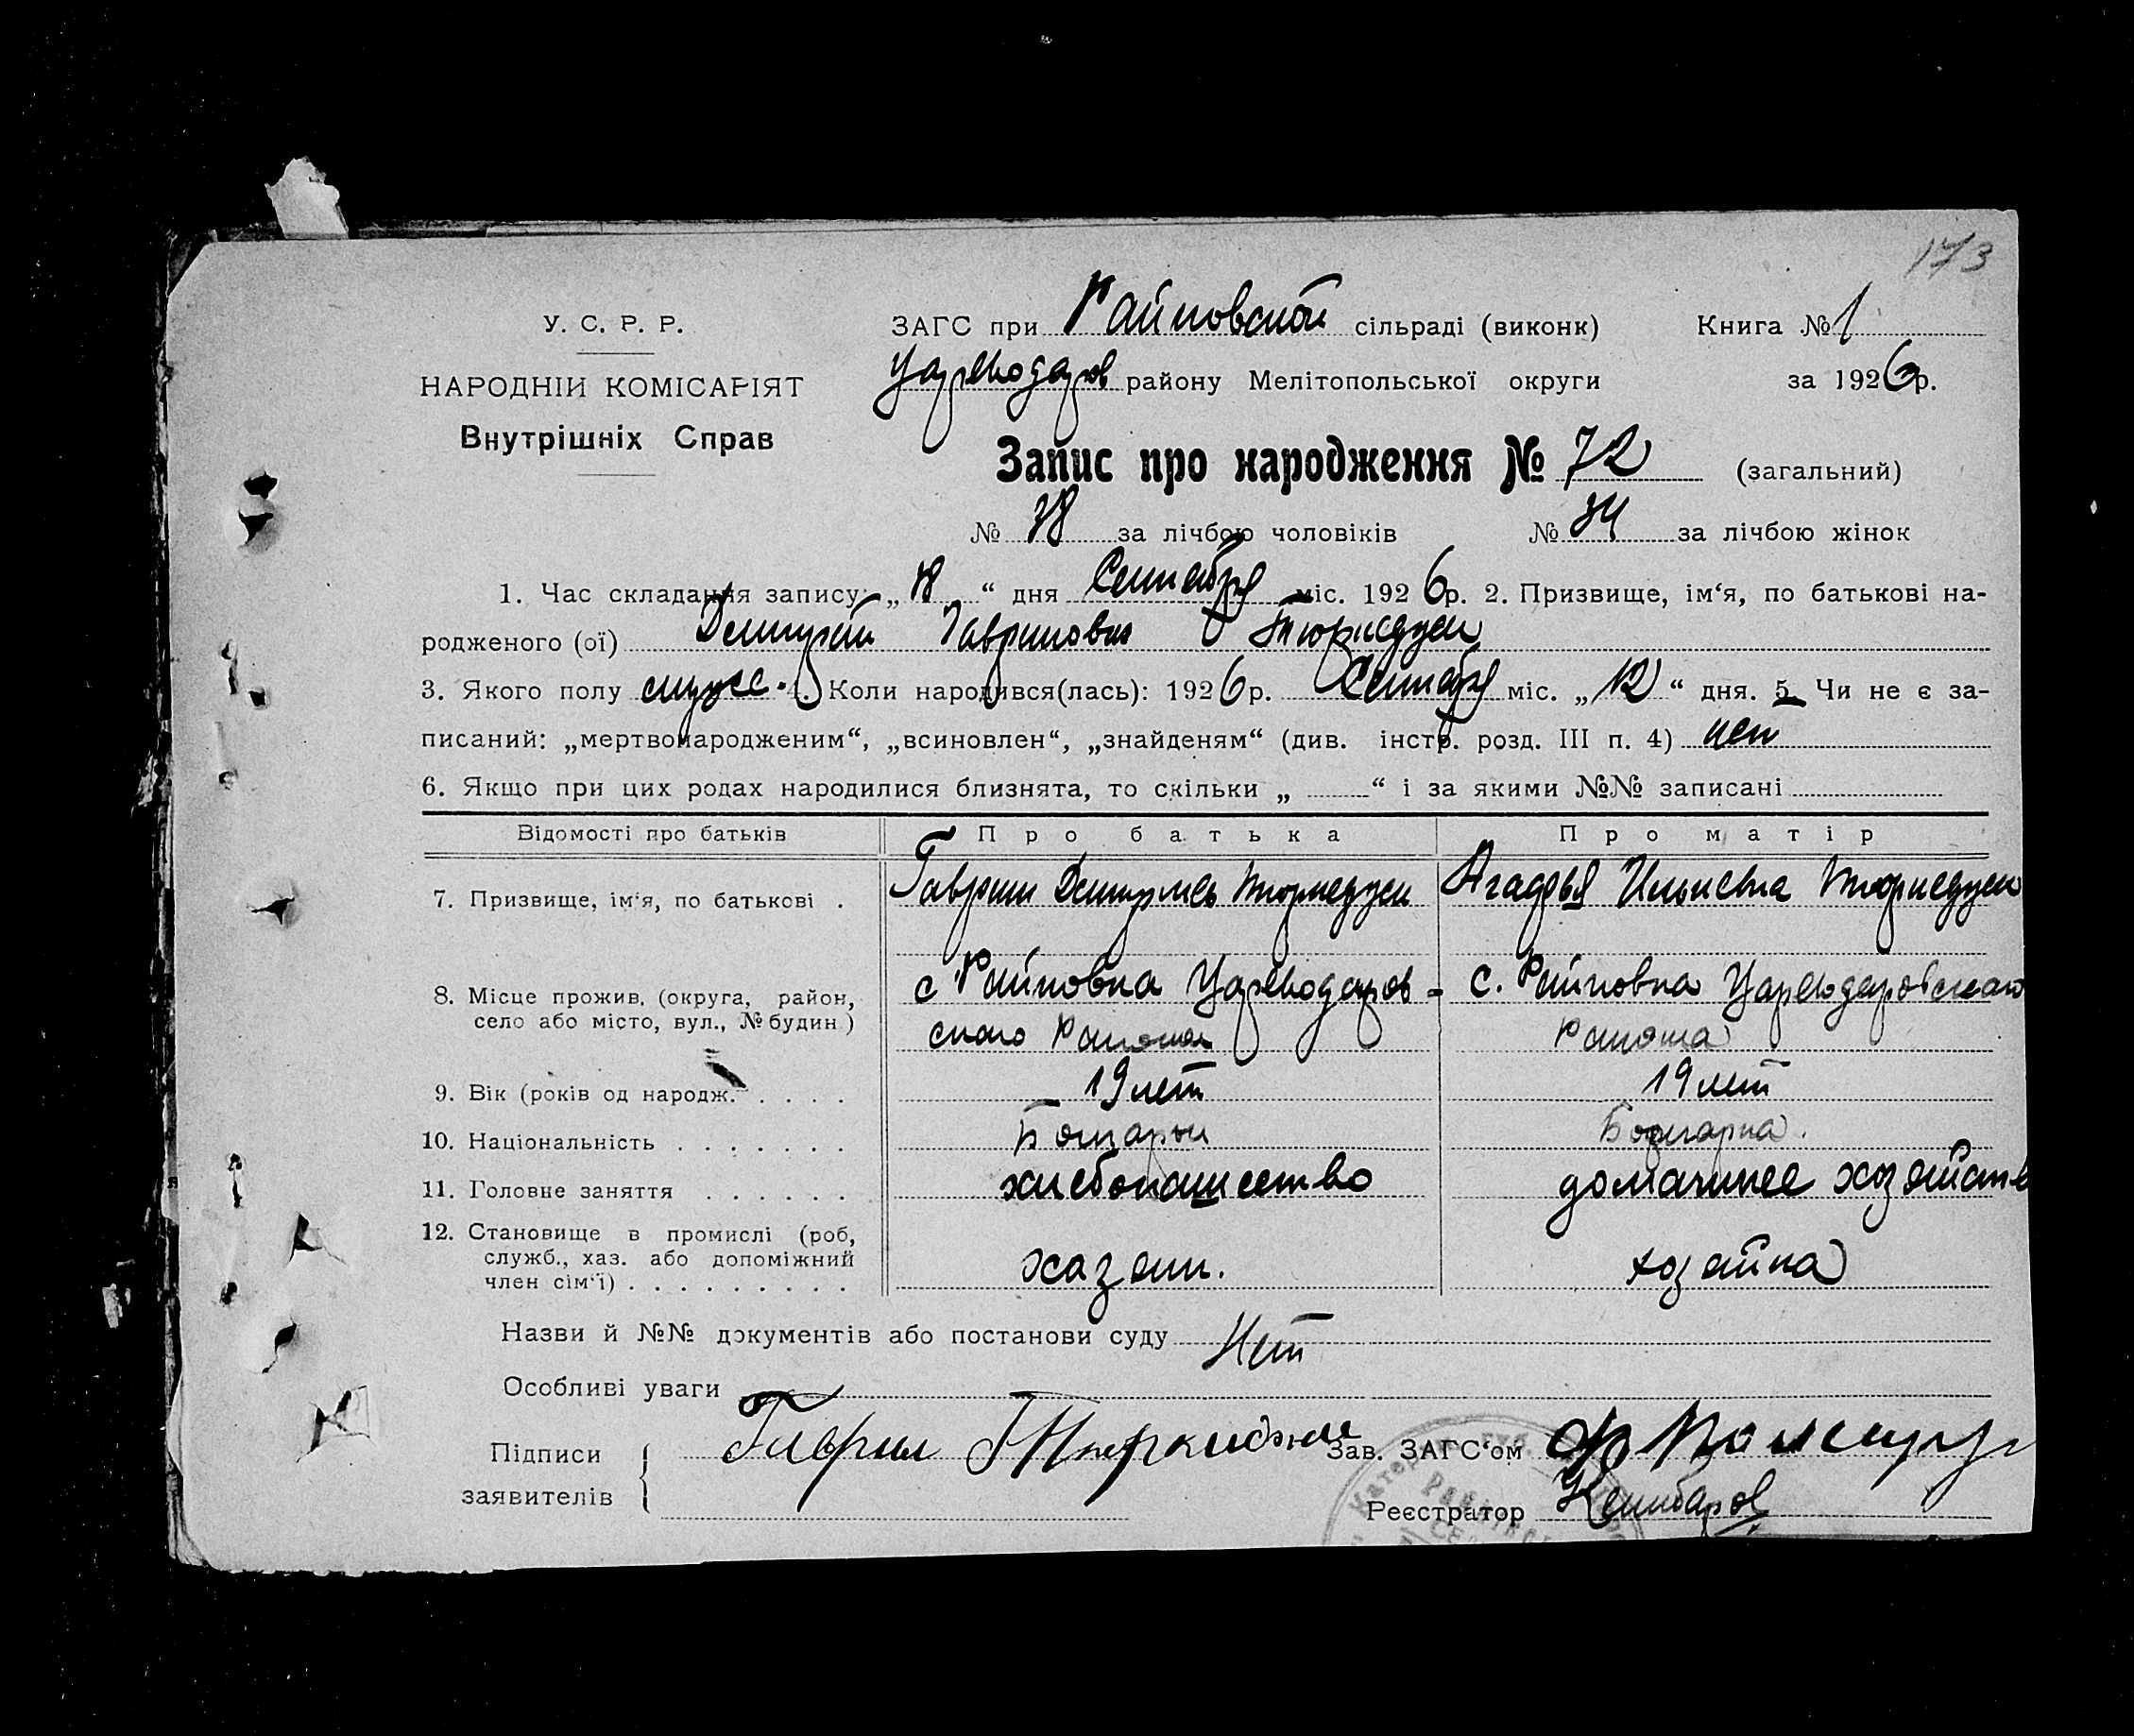 173
У. С. Р. Р.
НАРОДНІЙ КОМІСАРІЯТ
Внутрішніх Справ
ЗАГС при Райновской сільраді (виконк) Книга № 1
Цареводаров району Мелітопольської округи за 1926р.
Запис про народження № 72 (загальний)
№ 38 за лічбою чоловіків № 34 за лічбою жінок
1. Час складання запису: „18“ дня Сентября міс. 1926р. 2. Призвище, ім‘я, по батькові на-
родженого (ої) Дмитрий Гаврилович
3. Якого полу мужс. 4. Коли народився(лась): 1926р. Сентября міс. „12“ дня. 5. Чи не є за-
писаний: „мертвонародженим“, „всиновлен“, „знайденям“ (див. інстр. розд. III п. 4) нет
6. Якщо при цих родах народилися близнята, то скільки „ “ і за якими №№ записані
Відомості про батьків Про батька Про матір
7. Призвище, ім‘я, по батькові . Гаврил Дмитриев Агафья Ильиевна
8. Місце прожив. (округа, район, с Райновка Цареводаров- с. Райновка Цареводаровскаго
село або місто, вул., № будин) скаго Района Района
9. Вік (років од народж. . . . . 19 лет 19 лет
10. Національність . . . . . . . Болгарин Болгарка.
11. Головне заняття . . . . . . хлебопашество домашнее хозяйств
12. Становище в промислі (роб,
служб., хаз. або допоміжний хазяин. хозяйка
член сім‘ї) . . . . . . . . .
Назви й №№ документів або постанови суду Нет
Особливі уваги
Підписи Гаврил Зав. ЗАГС‘ом
заявителів Реєстратор